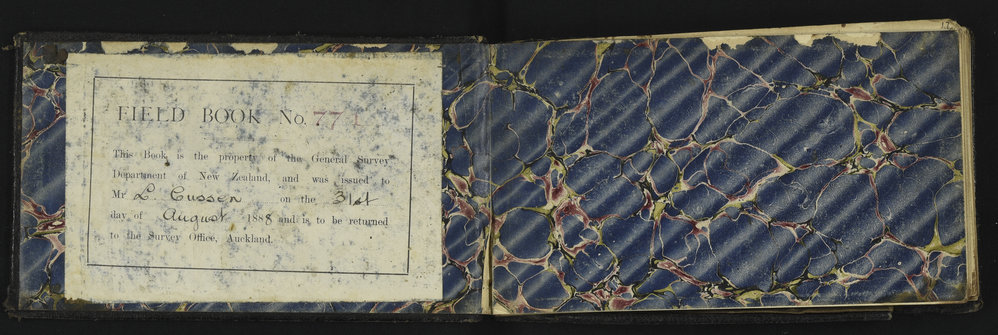 FIELD BOOK No. 77
This Book is the property of the General Survey
Department of New Zealand, and was issued to
Mr L. Cussen on the 31st
day of August 1888 and is to be returned
to the Survey Office, Auckland.